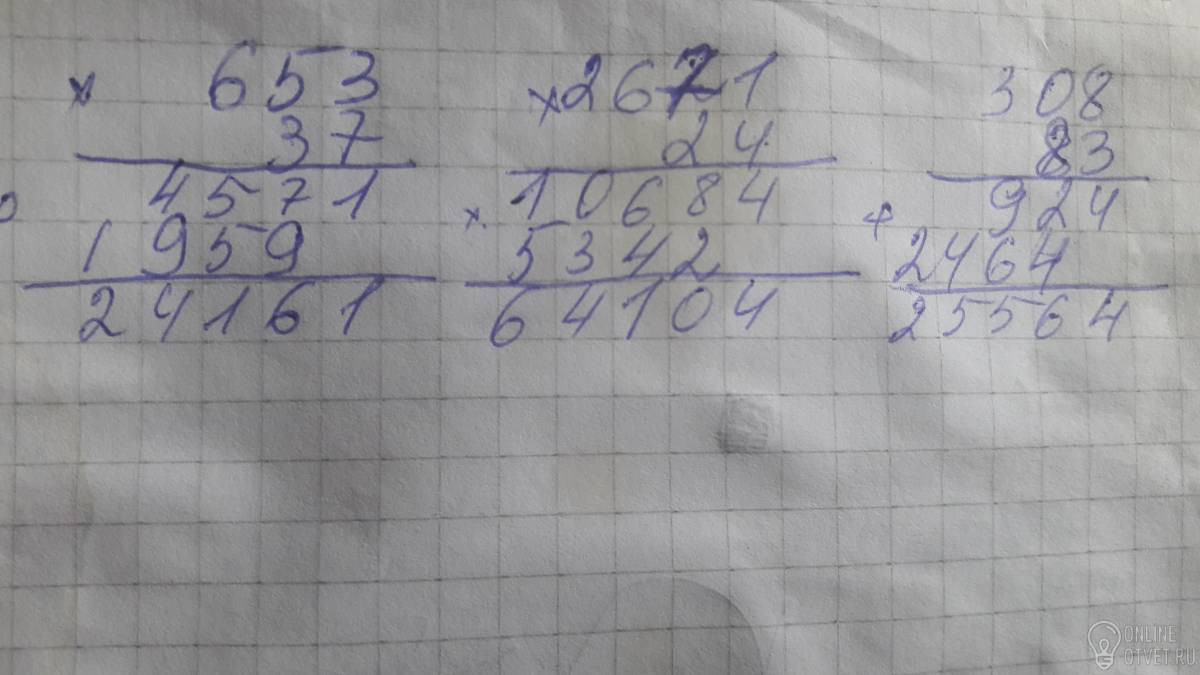 × 653
37
4571
1959
24161
× 2671
24
× 10684
5342
64104
308
83
+ 924
2464
25564
ONLINE
OTVET.RU